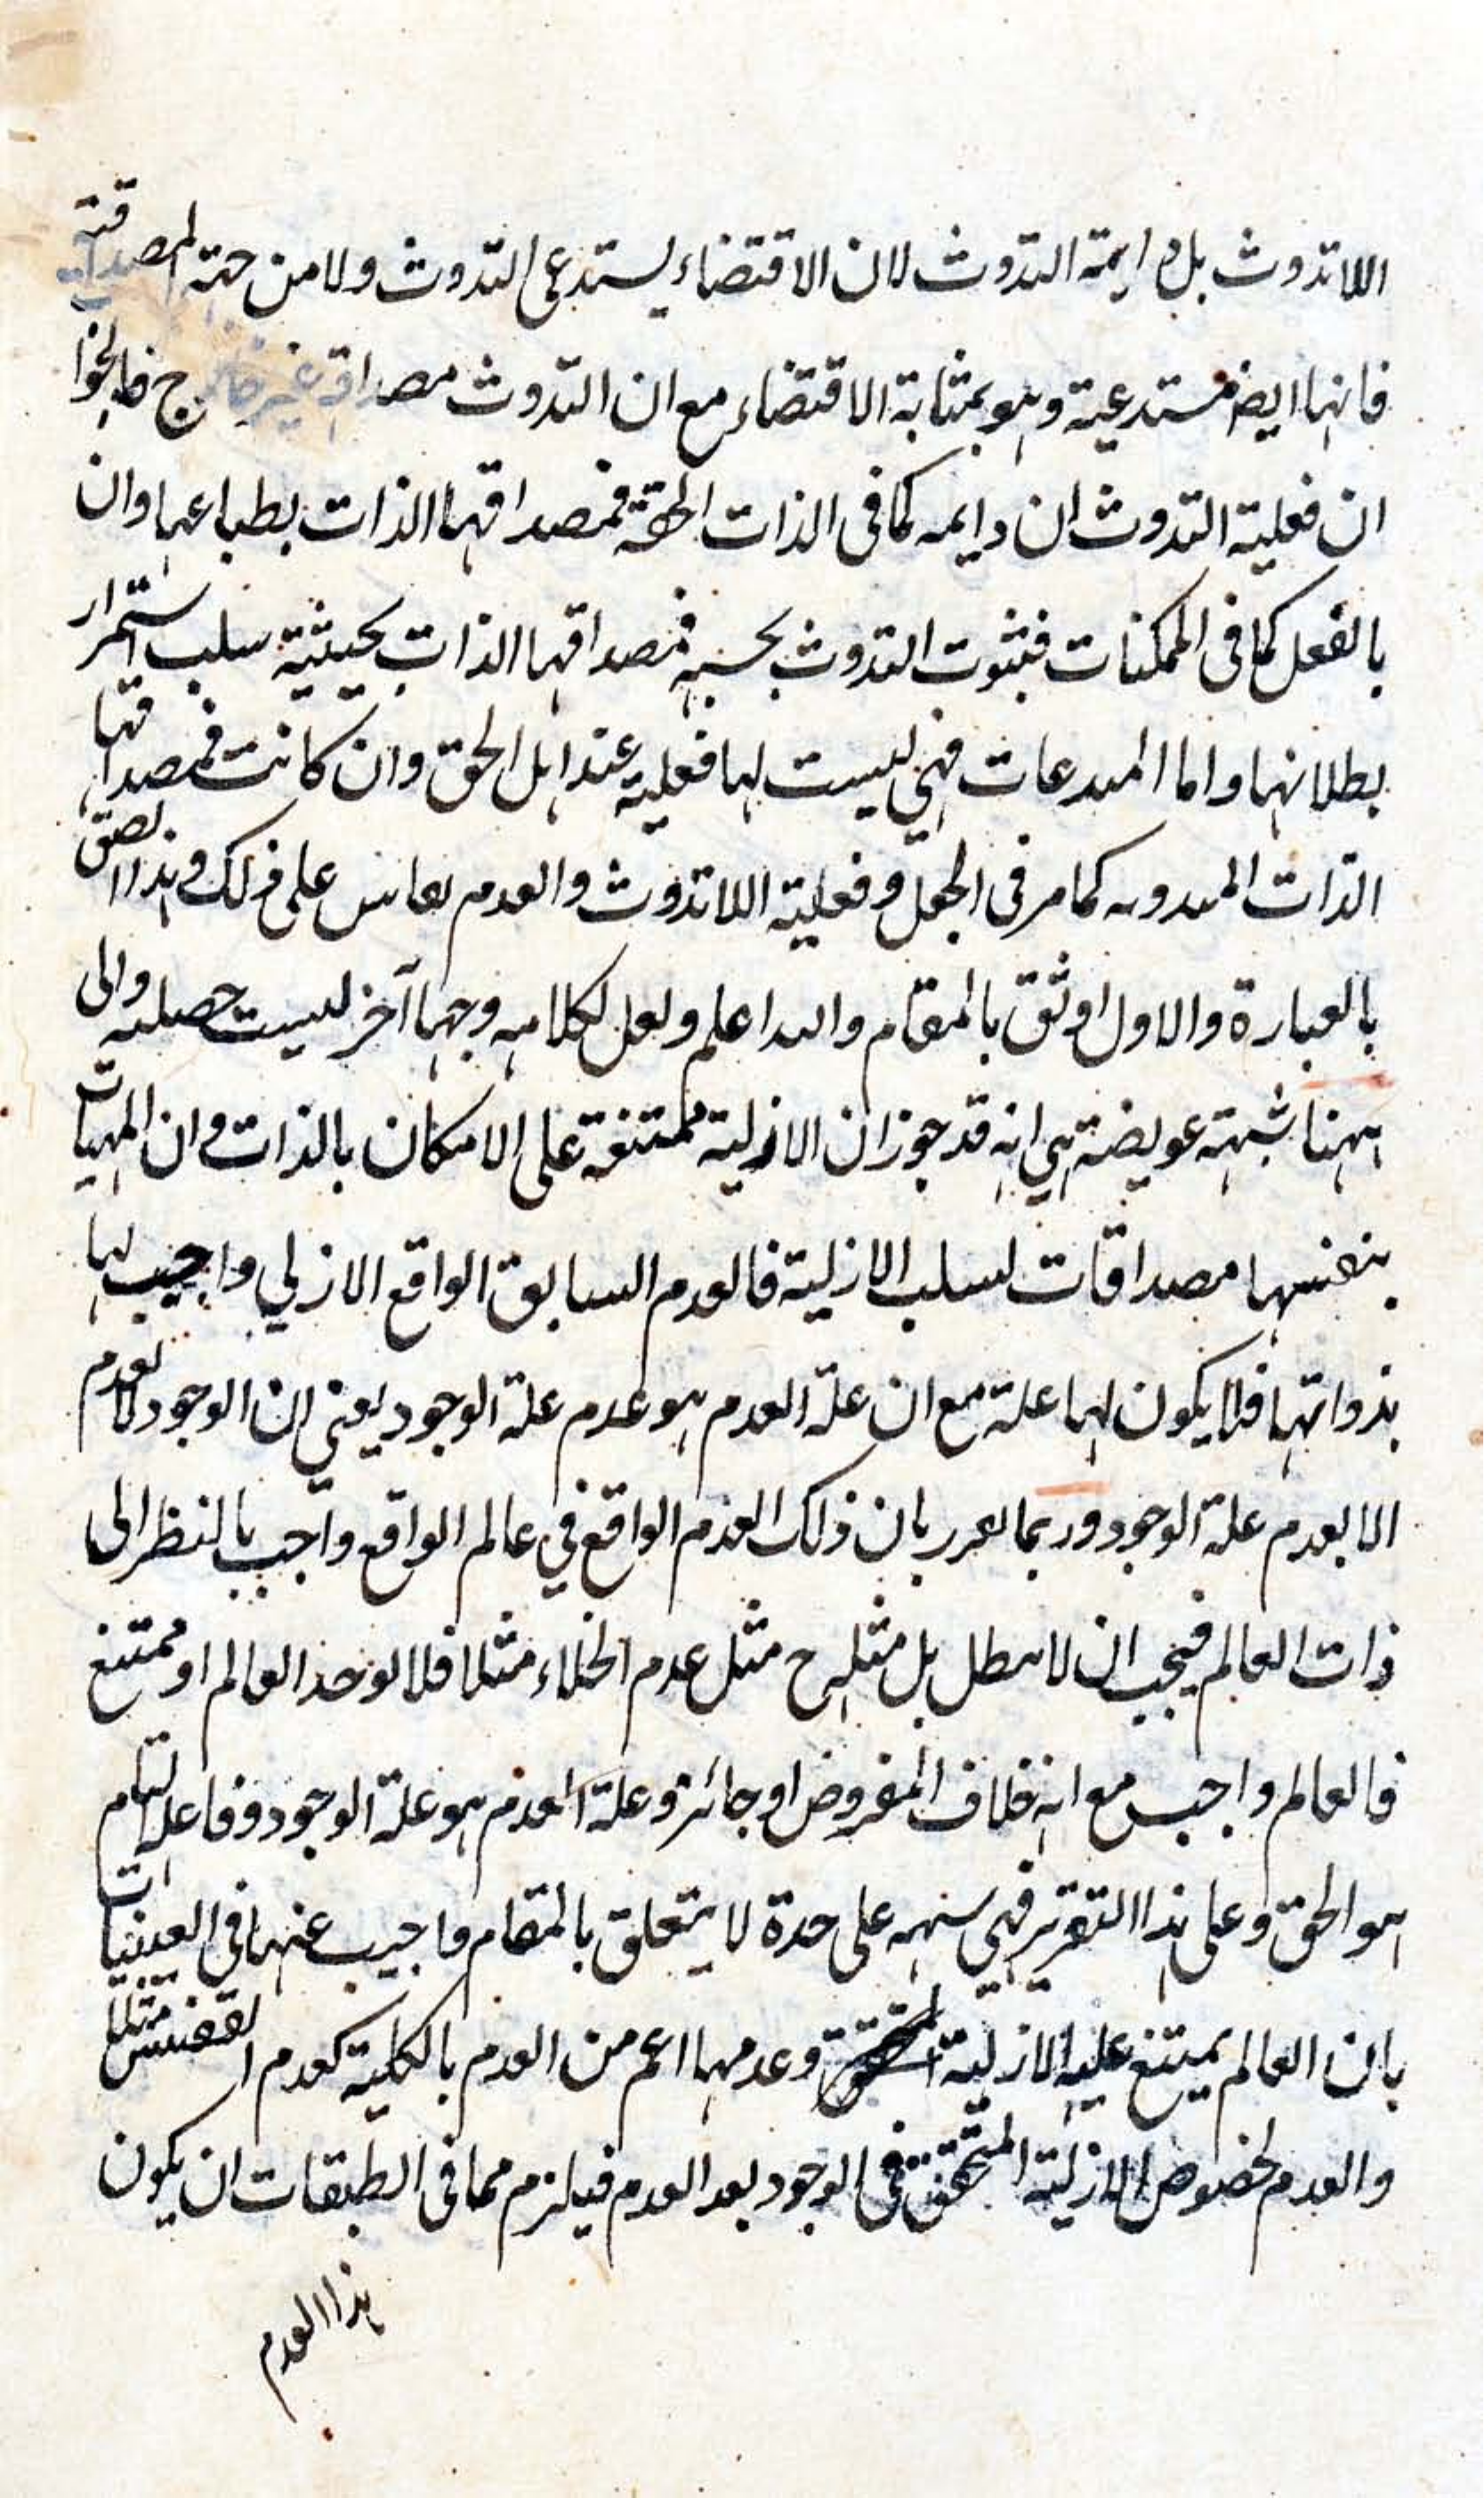 اللاتذوث بل دايمة التذوث لان الاقتضاء يستدعى التذوث ولا من جهة المصداقية
فانها ايضا مستدعية وهو بمثابة الاقتضاء مع ان التذوث مصداقه غير خارج فالجواب
ان فعلية التذوث ان دايمه كما فى الذات الحقة فمصداقها الذات بطباعها وان
بالفعل كما فى الممكنات فبثبوت التذوث بحسبه فمصداقها الذات بحيثية سلب استمرار
بطلانها واما المبدعات فهى ليست لها فعلية عند اهل الحق وان كانت فمصداقها
الذات المبدوعه كما مر فى الجعل وفعلية اللاتذوث والعدم يقاس على ذلك وهذا الصق
بالعبارة والاول اوثق بالمقام والله اعلم ولعل لكلامه وجها آخر ليست حصلته والى
ههنا شبهة عويضة هى انه قد جوز ان الازلية ممتنعة على الامكان بالذات وان المهيات
بنفسها مصداقات لسلب الازلية فالعدم السابق الواقع الازلي واجب لها
بذواتها فلا يكون لها علة مع ان علة العدم هو عدم علة الوجود يعنى ان الوجود لا يعدم
الا بعدم علة الوجود وربما يقرر بان ذلك العدم الواقع في عالم الواقع واجب بالنظر الى
ذات العالم فيجب ان لا يبطل بل مثله ح مثل عدم الخلاء مثلا فلا يوجد العالم او ممتنع
فالعالم واجب مع انه خلاف المفروض او جائز وعلة العدم هو علة الوجود وفاعله التام
هو الحق وعلى هذا التقرير فهى شبهه على حدة لا يتعلق بالمقام واجيب عنها فى العينيات
بان العالم يمتنع عليه الازلية المتحققة وعدمها اعم من العدم بالكلية كعدم القفنس مثلا
والعدم لخصوص الازلية المتحققة فى الوجود بعد العدم فيلزم مما فى الطبقات ان يكون
هذا العدم